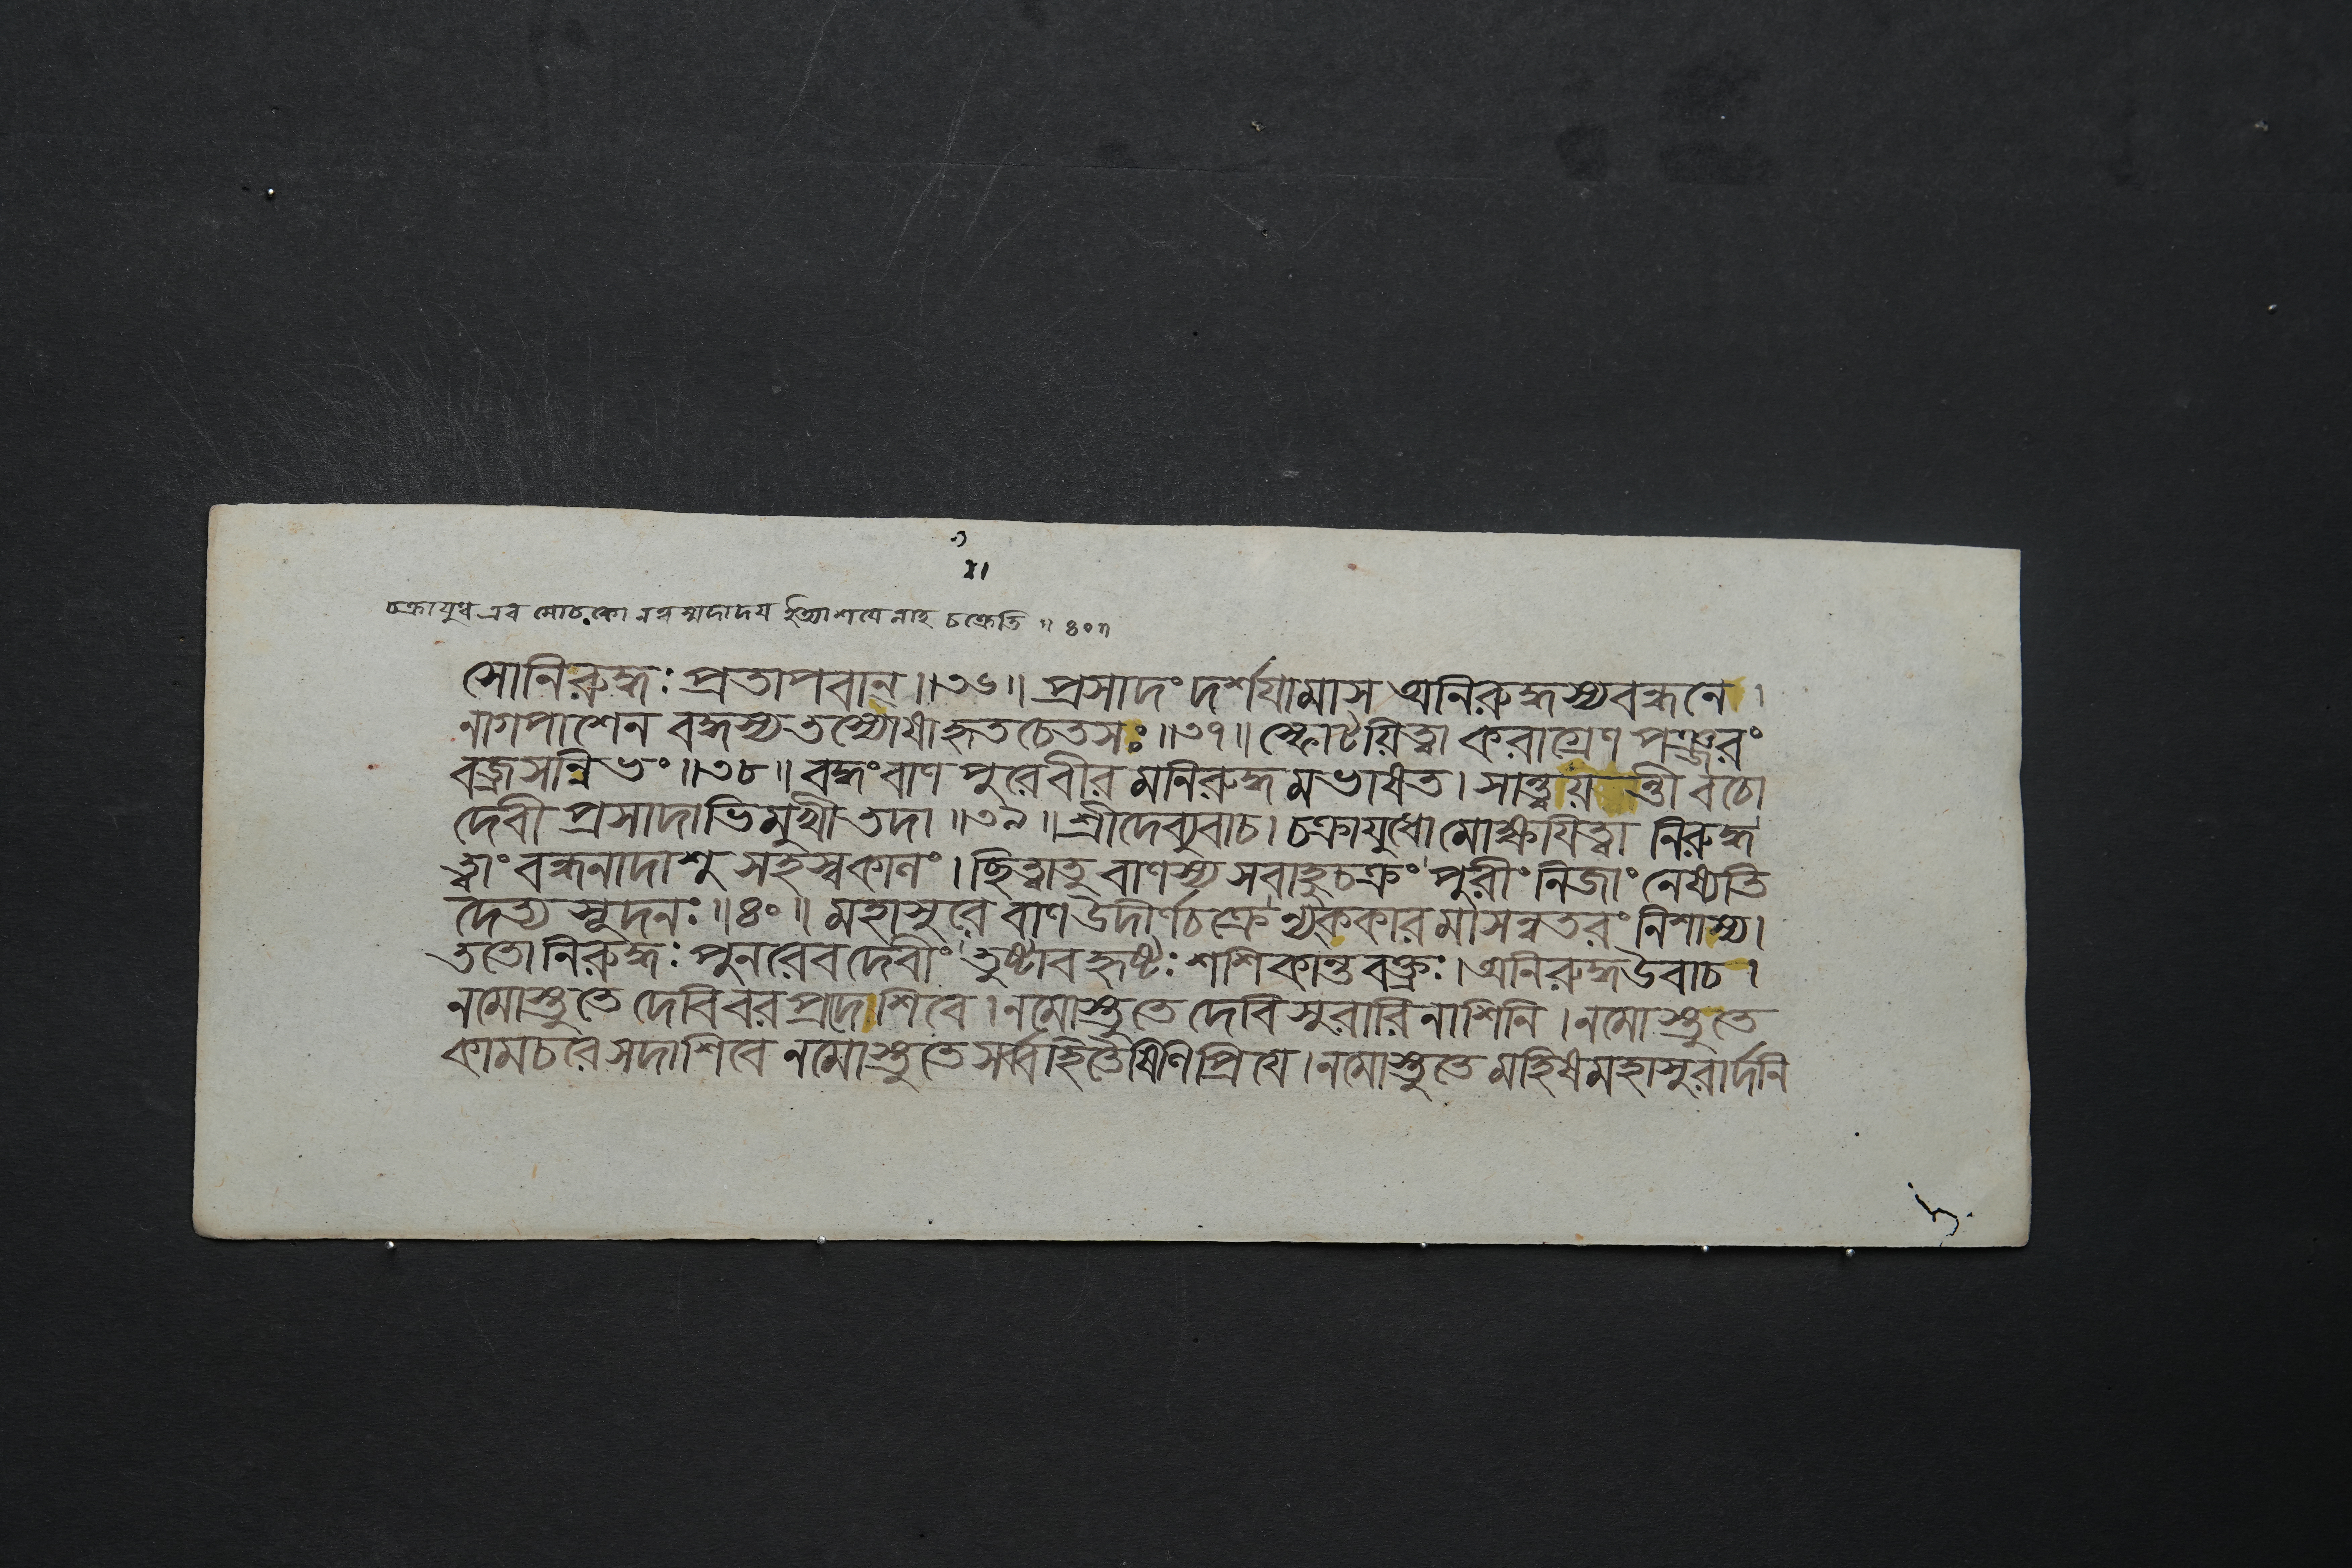 চক্রাযুধ এব মোচকো নত্বম্মদাদয ইত্যাশযেনাহ চক্রেতি ॥ ৪০॥
সোনিরুদ্ধঃ প্রতাপবান্ ॥৩৬॥ প্রসাদং দর্শযামাস অনিরুদ্ধস্যবন্ধনে ।
নাগপাশেন বদ্ধস্য তস্যোষাহৃতচেতসঃ ॥৩৭॥ স্ফোটয়িত্বা করাগ্রেণ পঞ্জরং
বজ্রসন্নিভং ॥৩৮॥ বদ্ধংবাণ পুরেবীর মনিরুদ্ধ মভাষত। সান্ত্বয়ন্তী বচো
দেবী প্রসাদাভিমুখী তদা ॥৩৯॥ শ্রীদেব্যুবাচ। চক্রাযুধো মোক্ষযিত্বা নিরুদ্ধ
ত্বাং বন্ধনাদাশু সহস্বকালং। ছিত্বাতু বাণস্য সবাহুচক্রং পুরীং নিজাং নেষ্যতি
দৈত্যসূদনঃ ॥৪০॥ মহাসুরে বাণউদীর্ণচক্রে মাসন্নতরং নিশাম্য।
ততোনিরুদ্ধঃ পুনরেবদেবীং তুষ্টাবহৃষ্টঃ শশিকান্তবক্ত্রঃ। অনিরুদ্ধউবাচ।
নমোস্তুতে দেবিবরপ্রদেশিবে। নমোস্তুতে দেবি সুরারিনাশিনি। নমোস্তুতে
কামচরেসদাশিবে নমোস্তুতে সর্ব্বহিতৈষিণিপ্রিযে। নমোস্তুতে মহিষমহাসুরার্দনি